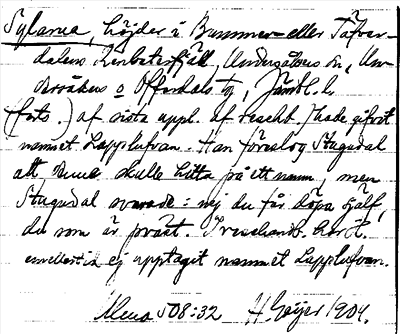 Sylarna, höjder i Bummer- eller Täfver-
dalens Renbetesfjäll, Undersåkers sn, Un-
dersåkers o Offerdals tg, Jämtl. l.
(forts.) af sista uppl. af resehb. hade gifvit
namnet Lapplufvan. Han föreslog Stagudal
att denne skulle hitta på ett namn, men
Stagudal svarade: nej du får döpa själf,
du som är präst. I resehandb. har öf.
emellertid ej upptagit namnet Lapplufvan.
508:32 H Geijer 1904.